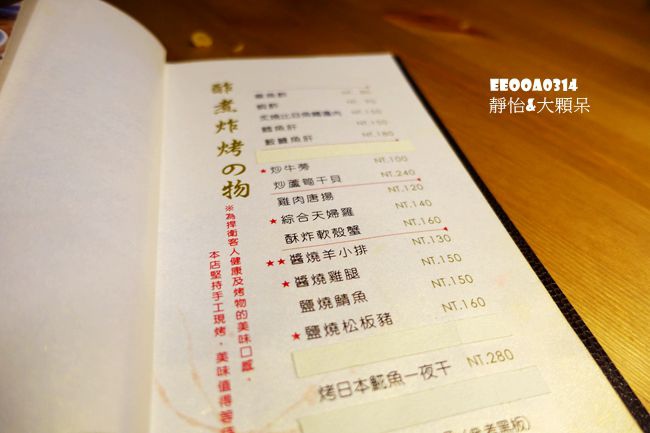 EE00A0314
靜怡&大顆呆
酢煮炸烤の物
※為捍衛客人健康及烤物的美味口感，
本店堅持手工現烤，美味值得等
炙燒比目魚鰭邊肉 NT.150
鱈魚肝 NT.150
鮟鱇魚肝 NT.180
★炒牛蒡 NT.100
炒蘆筍干貝 NT.240
雞肉唐揚 NT.120
★綜合天婦羅 NT.140
酥炸軟殼蟹 NT.160
★★醬燒羊小排 NT.130
★醬燒雞腿 NT.150
鹽燒鯖魚 NT.150
★鹽燒松板豬 NT.160
烤日本魠魚一夜干 NT.280